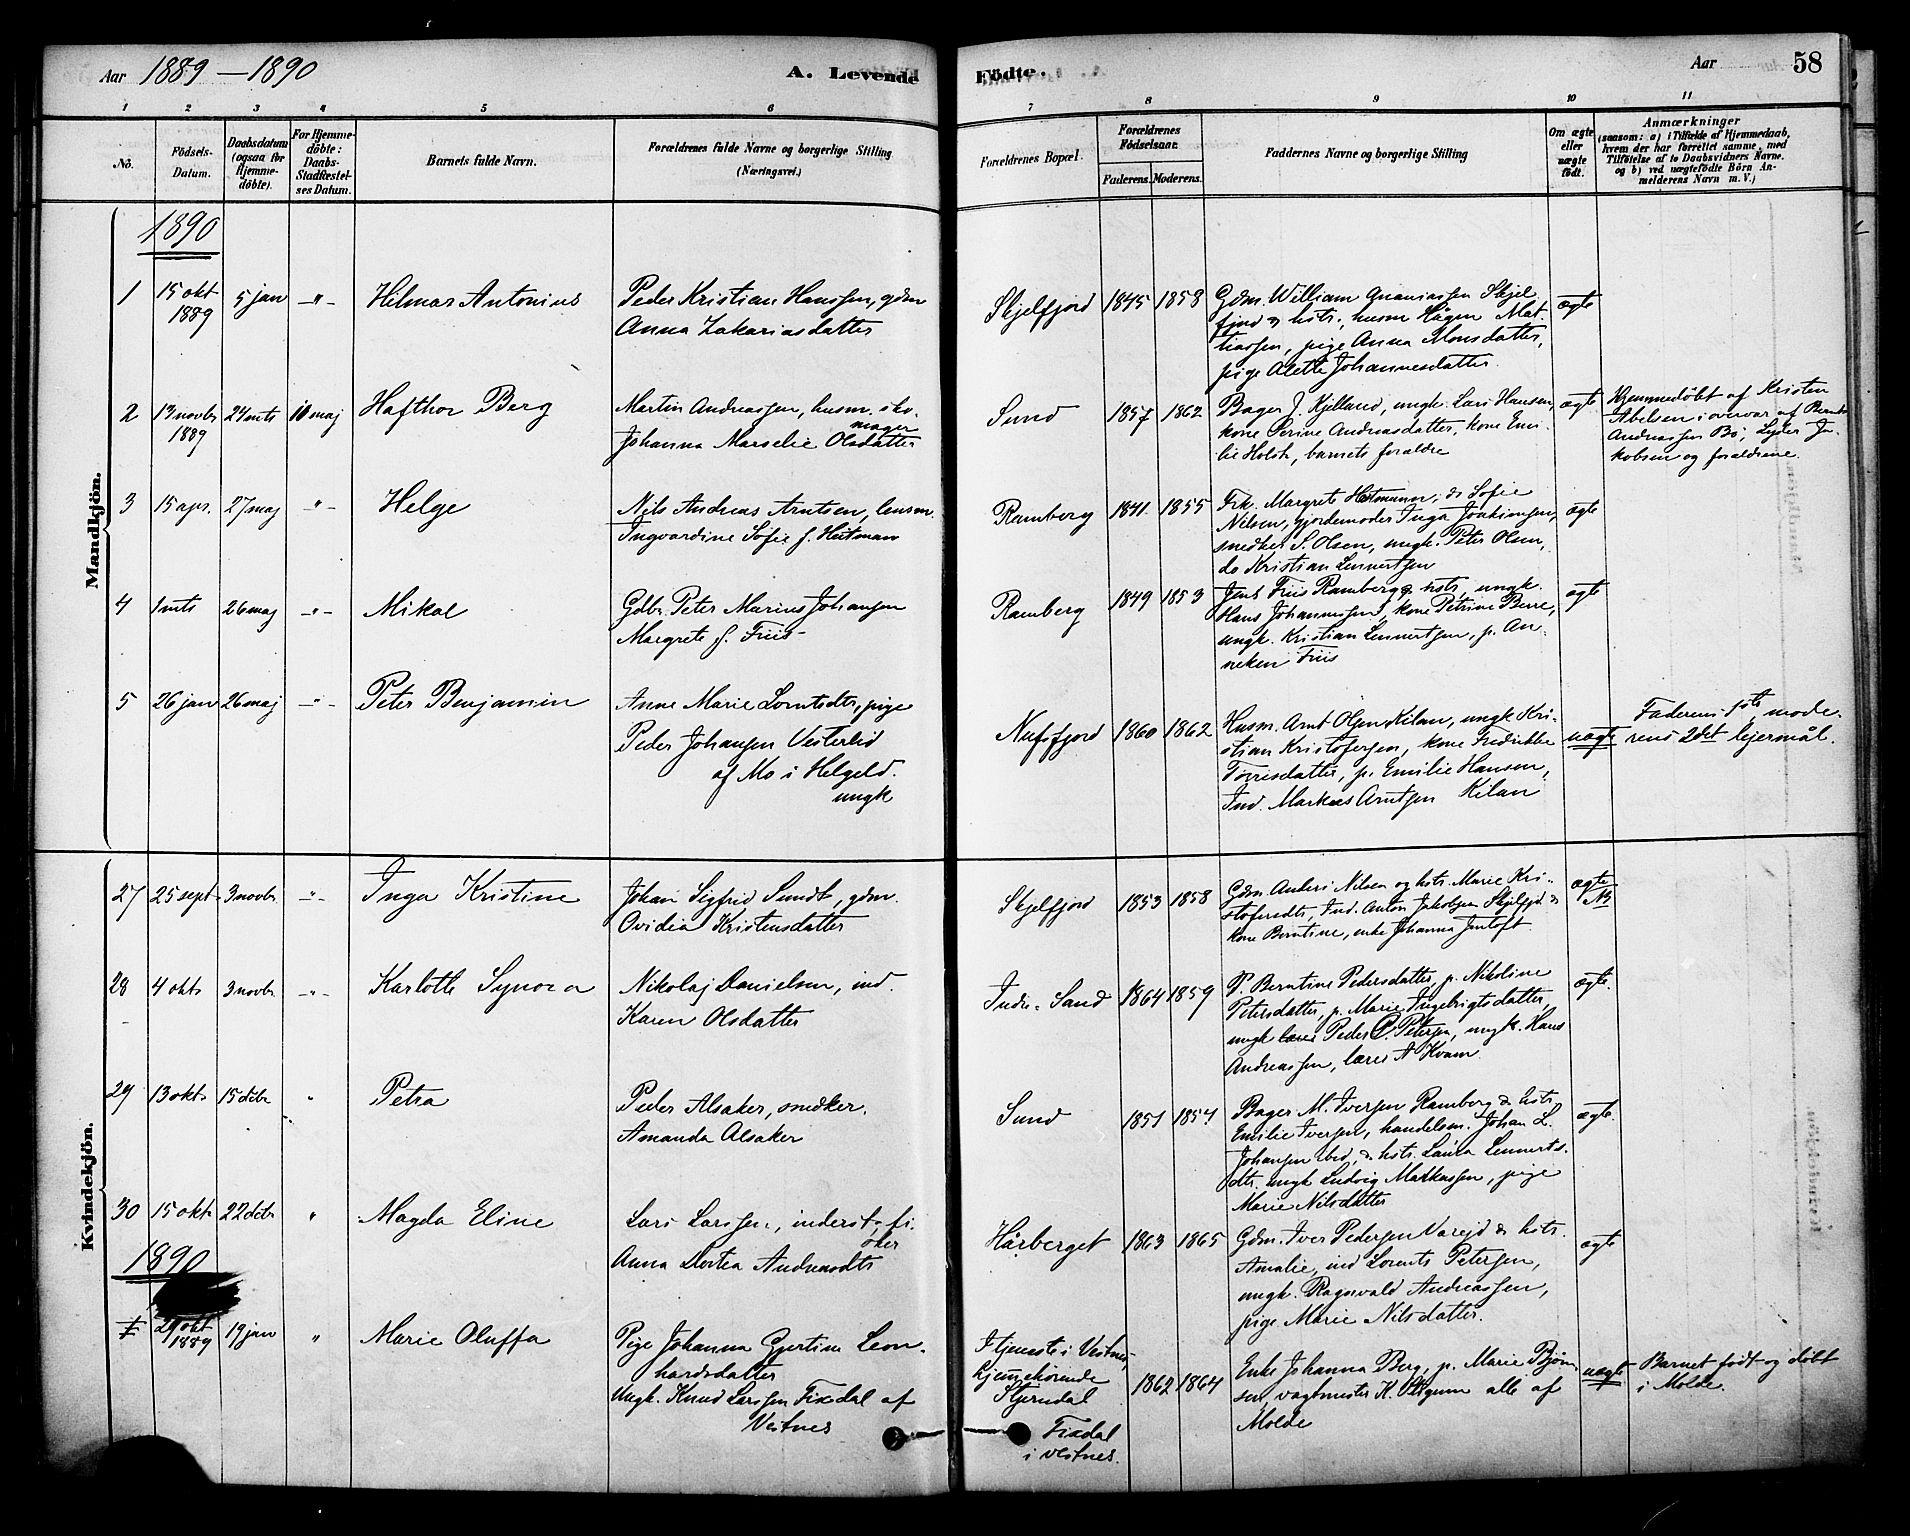 Aar 1889–1890
A. Levende
Födte.
Aar
58
1
2
3
4
5
6
7
8
9
10
11
No.
Födsels-
Datum.
Daabsdatum
(ogsaa för
Hjemme-
döbte).
For Hjemme-
döbte:
Daabs-
Stadfæstel-
ses Datum.
Barnets fulde Navn.
Forældrenes fulde Navne og borgerlige Stilling
(Næringsvei.)
Forældrenes Bopæl.
Forældrenes
Födselsaar.
Faderens.
Moderens.
Faddernes Navne og borgerlige Stilling
Om ægte
eller
uægte
födt.
Anmærkninger
(saasom: a) i Tilfælde af Hjemmedaab,
hvem der har forrettet samme, med
Tilföielse af to Daabsvidners Navne.
og b) ved uægtefödte Börn An-
melderens Navn m. V.)
Mandkjön.
1890
1
15 okt
1889
5 jan
–"–
Hilmar Antonius
Peder Kristian Hanssen, gdm
Anna Zakariasdatter
Skjelfjord
1845
1858
Gdm. William Ananiassen Skjel
fjord & hstr., husm Hågen Mat-
tiassen, pige Anna Monsdatter,
pige Alette Johannesdatter.
ægte
2
13 novbr
1889
24 mts
10 maj
Hafthor Berg
Martin Andreassen, husm. sko-
mager
Johanna Marselie Olsdatter
Sund
1857
1862
Bager J. Kjelland, ungk. Lars Hansen,
kone Serine Andreasdatter, kone Emi-
lie Holst, barnets foraldre
ægte
Hjemmedøbt af Kristen
Abelsen i overvær af Bernt
Andreassen Bø, Lyder Ja-
kobsen og foraldrene.
3
15 apr.
27 maj
"–
Helge
Nils Andreas Arntsen, lensm.
Ingvardine Sofie f. Hartman
Ramberg
1841
1855
Frk. Margrete Hartmann, do Sofie
Nilsen, gjordemoder Inga Joakimsen,
snedker S. Olsen, ungk. Peter Olsen,
do Kristian Lennertsen
ægte
4
1 mts
26 maj
–"–
Mikal
Gdbr. Peter Marius Johansen
Margrete f. Friis
Ramberg
1849
1853
Jens Friis Ramberg & hstr, ungk.
Hans Johannessen, kone Petrine Berre,
ungk. Kristian Lennertsen, p. An-
neken Friis
ægte
5
26 jan
26 maj
–"–
Peter Benjamin
Anne Marie Lorntsdtr, pige
Peder Johansen Vesterlid
af Mo i Helgeld.
ungk
Nufsfjord
1860
1862
Husm. Arnt Olsen Kilan, ungk Kri-
stian Kristofersen, kone Fredrikke
Torrisdatter, p. Emilie Hansen,
Ind. Markus Arntsen Kilan
uægte
Faderens 1ste, mode-
rens 2det lejermål.
Kvindekjön.
27
25 sept
3 novbr
–"–
Inga Kristine
Johan Sigfrid Sundt, gdm.
Ovidia Kristensdatter
Skjelfjord
1853
1858
Gdm Anders Nilsen og hstr. Marie Kri-
stoferedtr, Ind. Anton Jakobsen Skjelfjd &
kone Berntine, enke Johanna Jentoft.
ægte
28
4 okt
3 novbr
–"–
Karlotte Synora
Nikolaj Danielsen, ind.
Karen Olsdatter
Indre-Sand
1864
1859
P. Berntine Pedersdatter, p. Nikoline
Petersdatter, p. Marie Ingebrigtsdatter,
ungk lærer Peder P. Petersen, ungk. Hans
Andreassen, lærer A Kvam
ægte.
29
13 okt
15 debr
"
Petra
Peder Alsaker, snedker.
Amanda Alsaker
Sund
1851
1854
Bager M. Iversen Ramberg & hstr.
Emilie Iversen, handelsm. Johan L.
Johansen ibid, & hstr. Laura Lennerts-
dtr. ungk Ludvig Markussen, pige
Marie Nilsdatter
ægte.
30
15 okt
22 debr
"
Magda Eline
Lars Larssen, inderst & fi-
sker
Anna Dortea Andreasdtr
Hårberget
1863
1865
Gdm. Iver Pedersen Varejd & hstr.
Amalie, ind Lorents Petersen,
ungk. Ragnvald Andreassen,
pige Marie Nilsdatter.
ægte
1890
1
29 okt
1889
19 jan
"
Marie Oluffa
Pige Johanna Gjertine Leon-
hardsdatter
Ungk. Knud Larssen Fixdal af
Vestnes
I tjeneste i Vestnes,
hjemehørende
Stjerndal
Fixdal
i Vestnes.
1862
1864
Enke Johanna Berg, p. Marie Bjørn-
sen, vagtmester K. alle af
Molde
uægte
Barnet født og døbt
i Molde.